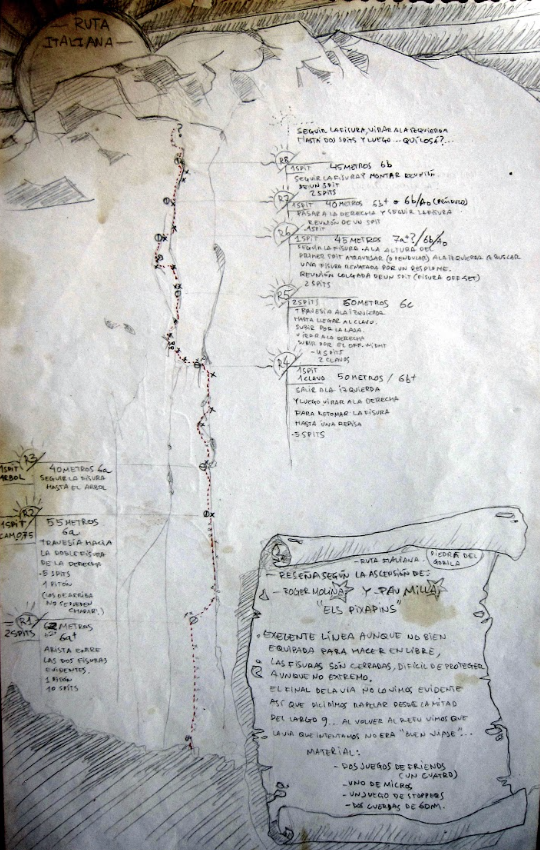 RUTA
ITALIANA
SEGUIR LA FISURA, VIRAR A LA IZQUIERDA
HASTA DOS SPITS Y LUEGO... QUI LO SÀ?...
R8
1 SPIT 45 METROS 6b
SEGUIR LA FISURA Y MONTAR REUNIÓN
DE UN SPIT
2 SPITS
R7
1 SPIT 40 METROS 6b+ o 6b/A0 (PÉNDULO)
PASAR A LA DERECHA Y SEGUIR LA FISURA
REUNIÓN DE UN SPIT
1 SPIT
R6
1 SPIT 45 METROS 7a+?/6b/A0
SEGUIR LA FISURA A LA ALTURA DEL
PRIMER SPIT ATRAVESAR (O PENDULAR) A LA IZQUIERDA A BUSCAR
UNA FISURA REMATADA POR UN DESPLOME.
REUNIÓN COLGADA DE UN SPIT (FISURA OFF-SET)
2 SPITS
R5
2 SPITS 50 METROS 6c
TRAVESÍA A LA IZQUIERDA
HASTA LLEGAR AL CLAVO.
SUBIR POR LA LAJA.
VIRAR A LA DERECHA
SUBIR POR EL OFF-WIDTH
4 SPITS
2 CLAVOS
R4
1 SPIT
1 CLAVO 50 METROS / 6b+
SALIR A LA IZQUIERDA
Y LUEGO VIRAR A LA DERECHA
PARA RETOMAR LA FISURA
HASTA UNA REPISA
-5 SPITS
R3
1 SPIT
ARBOL
40 METROS 6a
SEGUIR LA FISURA
HASTA EL ARBOL
R2
1 SPIT
CAM 0,75
55 METROS
6a
TRAVESIA HACIA
LA DOBLE FISURA
DE LA DERECHA
-5 SPITS
1 PITÓN
(LOS DE ARRIBA
NO SE PUEDEN
CHAPAR.)
R1
2 SPITS
62 METROS
6a+
ARISTA ENTRE
LAS DOS FISURAS
EVIDENTES.
1 PITÓN
10 SPITS
- RUTA ITALIANA. PIEDRA DEL
GORILA
- RESEÑA SEGÚN LA ASCENSIÓN DE:
- ROGER MOLINA Y -PAU MILLA
"ELS PIXAPINS"
EXELENTE LÍNEA AUNQUE NO BIEN
EQUIPADA PARA HACER EN LIBRE,
LAS FISURAS SON CERRADAS, DIFÍCIL DE PROTEGER
AUNQUE NO EXTREMO.
EL FINAL DE LA VIA NO LO VIMOS EVIDENTE
ASÍ QUE DICIDIMOS RAPELAR DESDE LA MITAD
DEL LARGO 9... AL VOLVER AL REFU VIMOS QUE
LA VIA QUE INTENTAMOS NO ERA "BUEN VIAJE"...
MATERIAL:
- DOS JUEGOS DE FRIENDS
(UN CUATRO)
- UNO DE MICROS
- UN JUEGO DE STOPPERS
- DOS CUERDAS DE 60M.